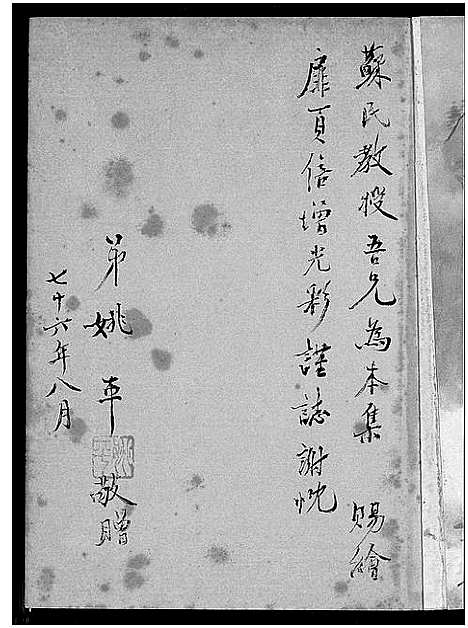 蘇民教授吾兄為本集 賜繪
扉頁倍增光彩謹誌謝忱
弟姚平敬贈
七十六年八月